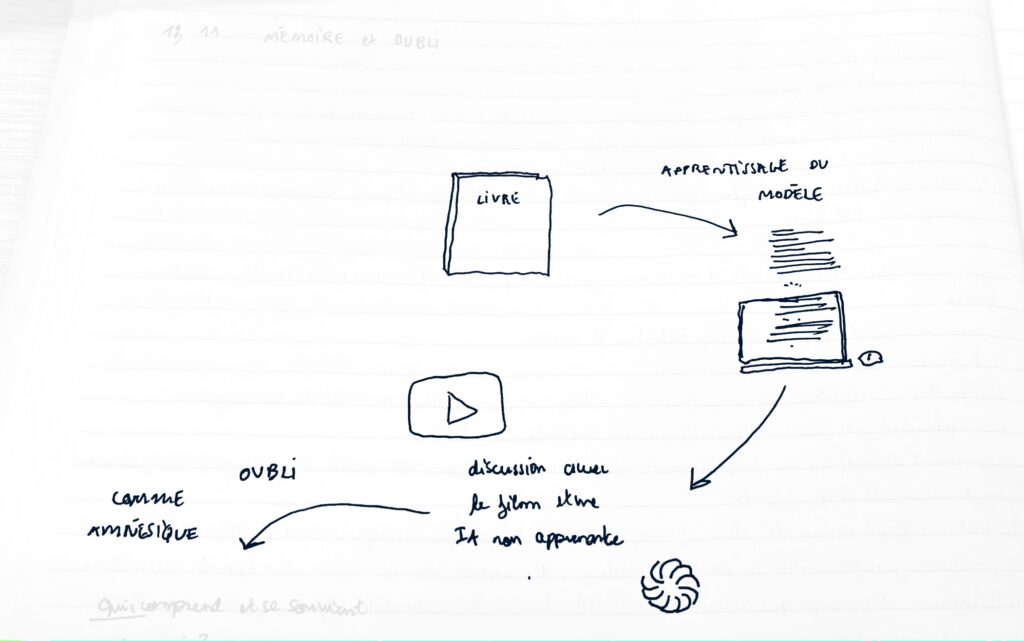 13.11 MÉMOIRE et OUBLI
LIVRE
APPRENTISSAGE DU
MODÈLE
discussion avec
le film et une
IA non apprenante
OUBLI
COMME
AMNÉSIQUE
Qui comprend et se souvient